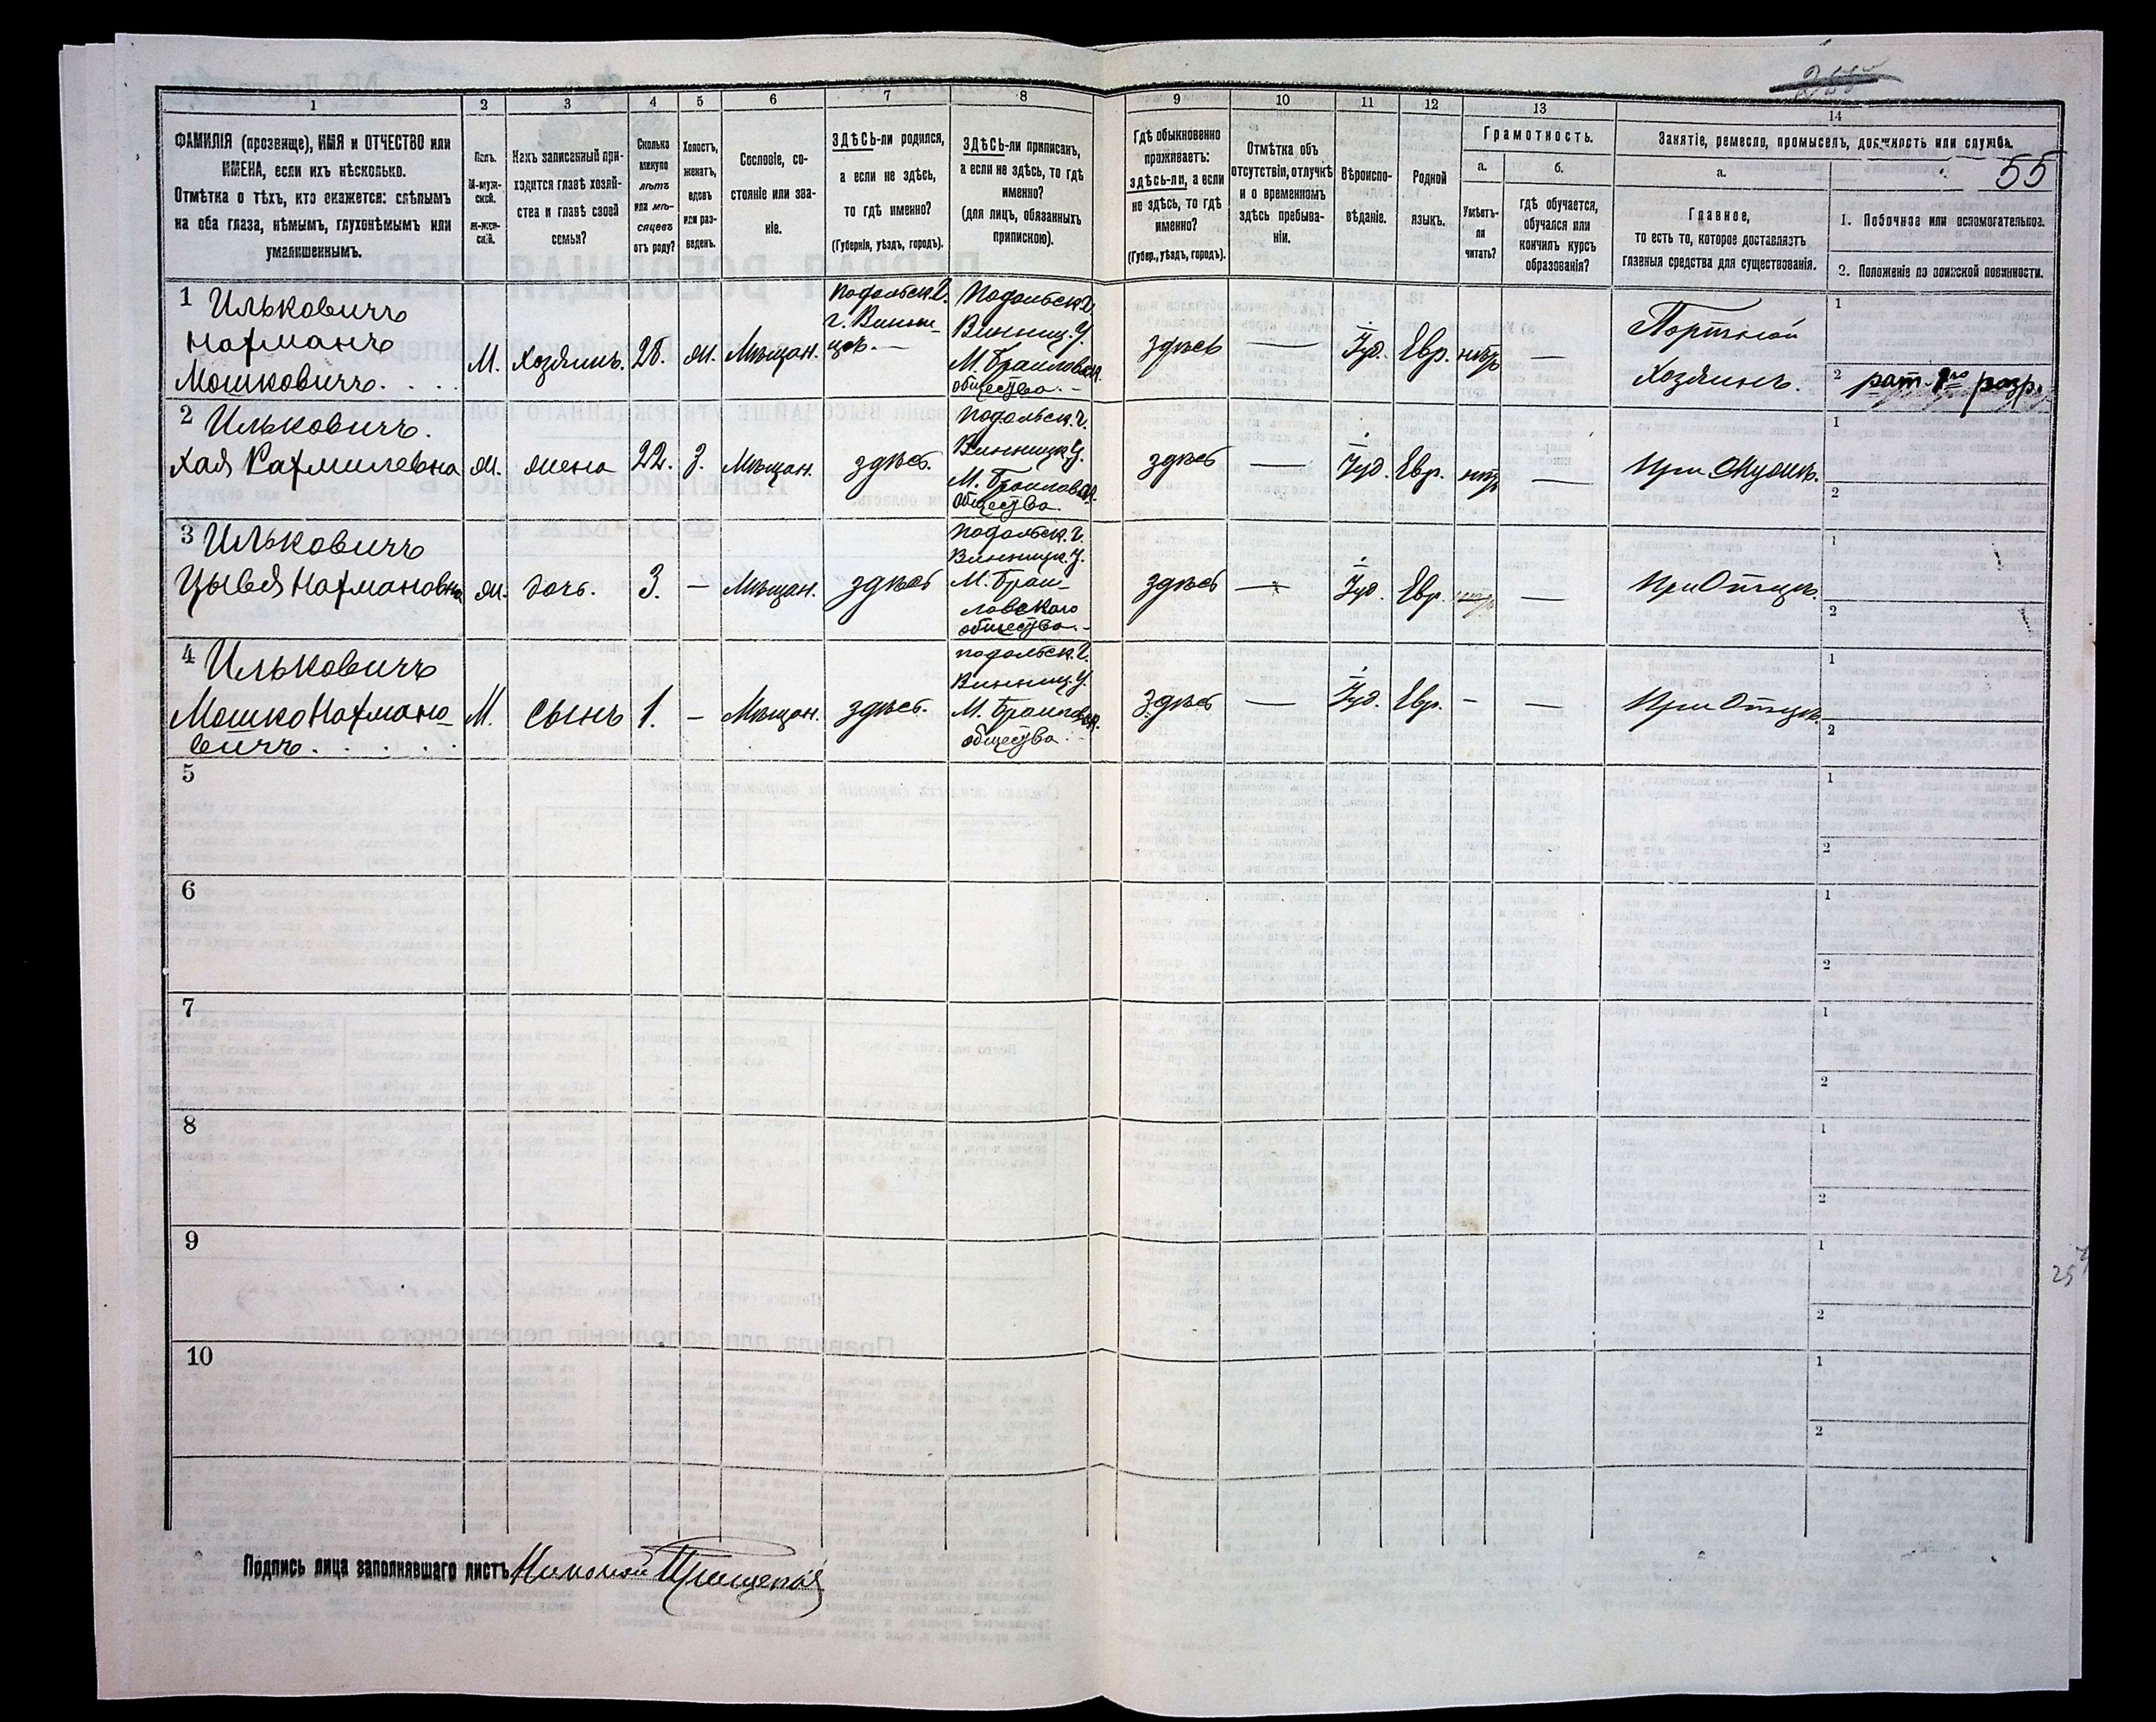 1
2
3
4
5
6
7
8
9
10
11
12
13
14
ФАМИЛІЯ (прозвище), ИМЯ и ОТЧЕСТВО или
ИМЕНА, если ихъ нѣсколько.
Отмѣтка о тѣхъ, кто окажется: слѣпымъ
на оба глаза, нѣмымъ, глухонѣмымъ или
умалишеннымъ.
Полъ.
М-муж-
ской.
Ж-жен-
скій.
Какъ записанный при-
ходится главѣ хозяй-
ства и главѣ своей
семьи?
Сколько
минуло
лѣтъ
или мѣ-
сяцевъ
отъ роду?
Холостъ,
женатъ,
вдовъ
или раз-
веденъ.
Сословіе, со-
стояніе или зва-
ніе.
ЗДѢСЬ-ли родился,
а если не здѣсь,
то гдѣ именно?
(Губернія, уѣздъ, городъ).
ЗДѢСЬ-ли приписанъ,
а если не здѣсь, то гдѣ
именно?
(для лицъ, обязанныхъ
припискою).
Гдѣ обыкновенно
проживаетъ:
здѣсь-ли, а если
не здѣсь, то гдѣ
именно?
(Губер., уѣздъ, городъ).
Отмѣтка объ
отсутствіи, отлучкѣ
и о временномъ
здѣсь пребыва-
ніи.
Вѣроиспо-
вѣданіе.
Родной
языкъ.
Грамотность.
а.
Умѣетъ-
ли
читать?
б.
гдѣ обучается,
обучался или
кончилъ курсъ
образованія?
Занятіе, ремесло, промыселъ, должность или служба.
55
а.
Главное,
то есть то, которое доставляетъ
главныя средства для существованія.
1. Побочное или вспомогательное.
2. Положеніе по воинской повинности.
1 Ильковичъ
Нахманъ
Мошковичъ. . . .
М. Хозяинъ. 28. ж. Мѣщан.
Подольск. Г.
г. Винни-
цѣ. —
Подольск. Г.
Винниц. У.
М. Браиловск.
общества. -
здѣсь — Іуд. Евр. нѣтъ —
Портной
Хозяинъ.
1
2 рат. 1го разр.
2 Ильковичъ.
Хая Рахмилевна ж. жена 22. З. Мѣщан. здѣсь.
Подольск. г.
Винницк. У.
М. Браиловск.
общества.
здѣсь — Іуд. Евр. нѣтъ — При Мужѣ.
1
2
3 Ильковичъ
Цывья Нахмановна ж. дочь. 3. — Мѣщан. здѣсь
Подольск. г.
Винницк. У.
М. Браи-
ловского
общества. -
здѣсь — Іуд. Евр. — При Отцѣ.
1
2
4 Ильковичъ
Мошко Нахмано-
вичъ . . . . .
М. сынъ 1. — Мѣщан. здѣсь.
Подольск. Г.
Винниц. У.
М. Браиловск.
общества.
здѣсь — Іуд. Евр. - — При Отцѣ.
1
2
5
1
2
6
1
2
7
1
2
8
1
2
9
1
2
10
1
2
Подпись лица заполнявшаго листъ